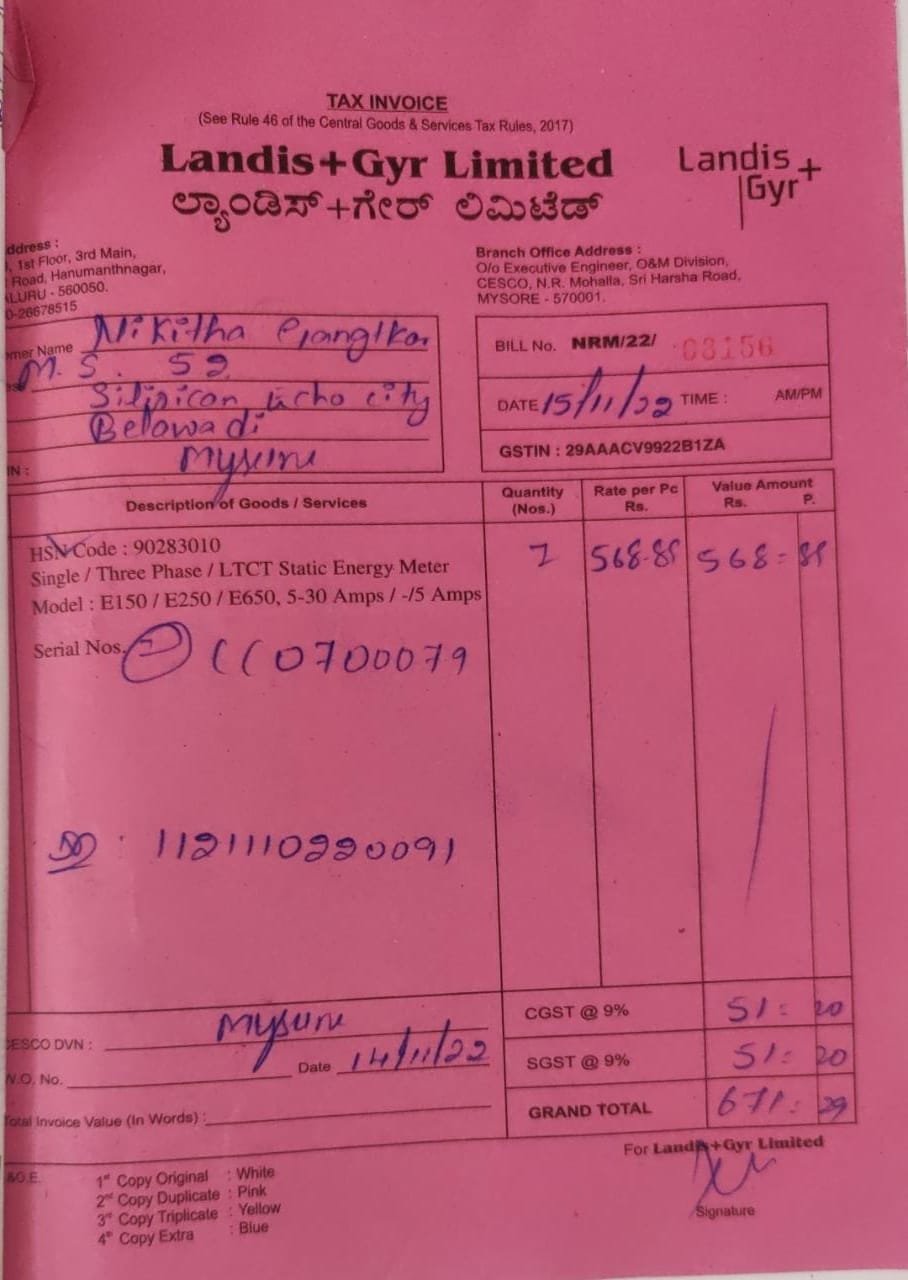 TAX INVOICE
(See Rule 46 of the Central Goods & Services Tax Rules, 2017)
Landis+Gyr Limited
Landis+
Gyr
ಲ್ಯಾಂಡಿಸ್+ಗೇರ್ ಲಿಮಿಟೆಡ್
ddress :
, 1st Floor, 3rd Main,
Road, Hanumanthnagar,
LURU - 560050.
0-26678515
Branch Office Address :
O/o Executive Engineer, O&M Division,
CESCO, N.R. Mohalla, Sri Harsha Road,
MYSORE - 570001.
omer Name Nikitha
M. S. 52
city
Belawadi
Mysuru
IN :
BILL No. NRM/22/ 03156
DATE 15/11/22 TIME : AM/PM
GSTIN : 29AAACV9922B1ZA
Description of Goods / Services Quantity (Nos.) Rate per Pc Rs. Value Amount Rs. P.
HSN Code : 90283010
Single / Three Phase / LTCT Static Energy Meter
Model : E150 / E250 / E650, 5-30 Amps / -/5 Amps
1 568-81 568=81
Serial Nos. CC0700079
: 1121110220091
CGST @ 9% 51= 20
SGST @ 9% 51= 20
GRAND TOTAL 671= 29
CESCO DVN : Mysuru
W.O. No. Date 14/11/22
Total Invoice Value (In Words) :
For Landis+Gyr Limited
Signature
&O.E.
1st Copy Original : White
2nd Copy Duplicate : Pink
3rd Copy Triplicate : Yellow
4th Copy Extra : Blue